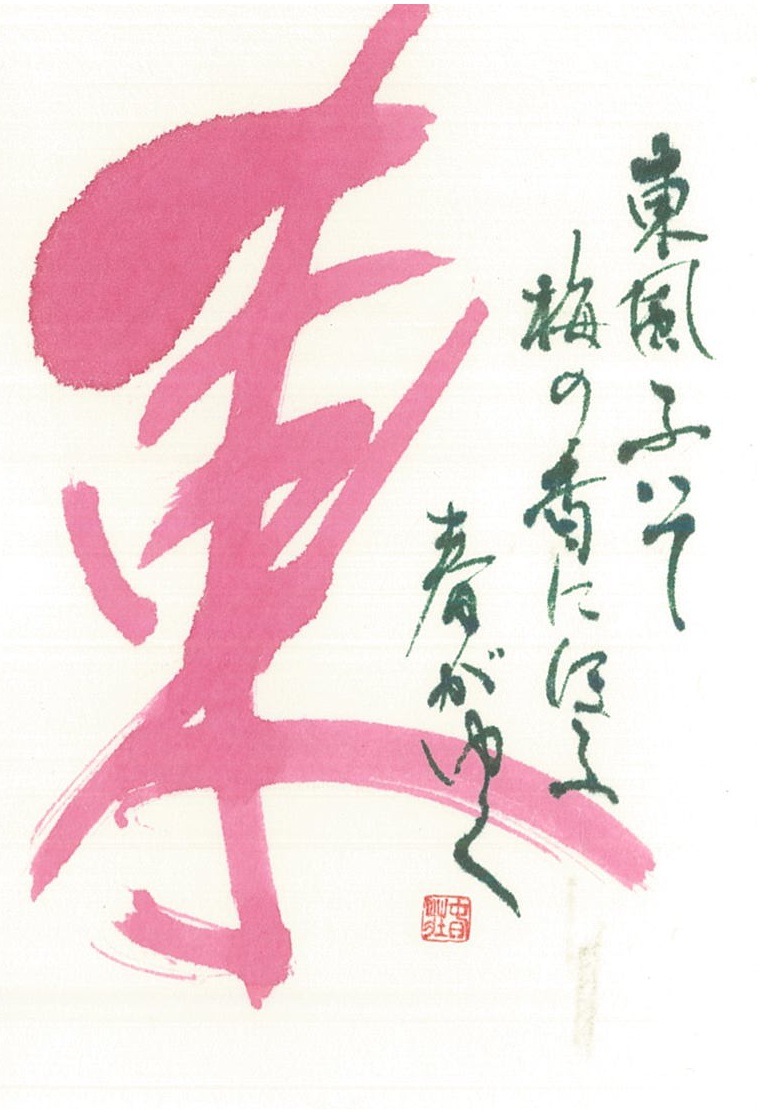 東風ふいて
梅の香にほふ
春がゆく